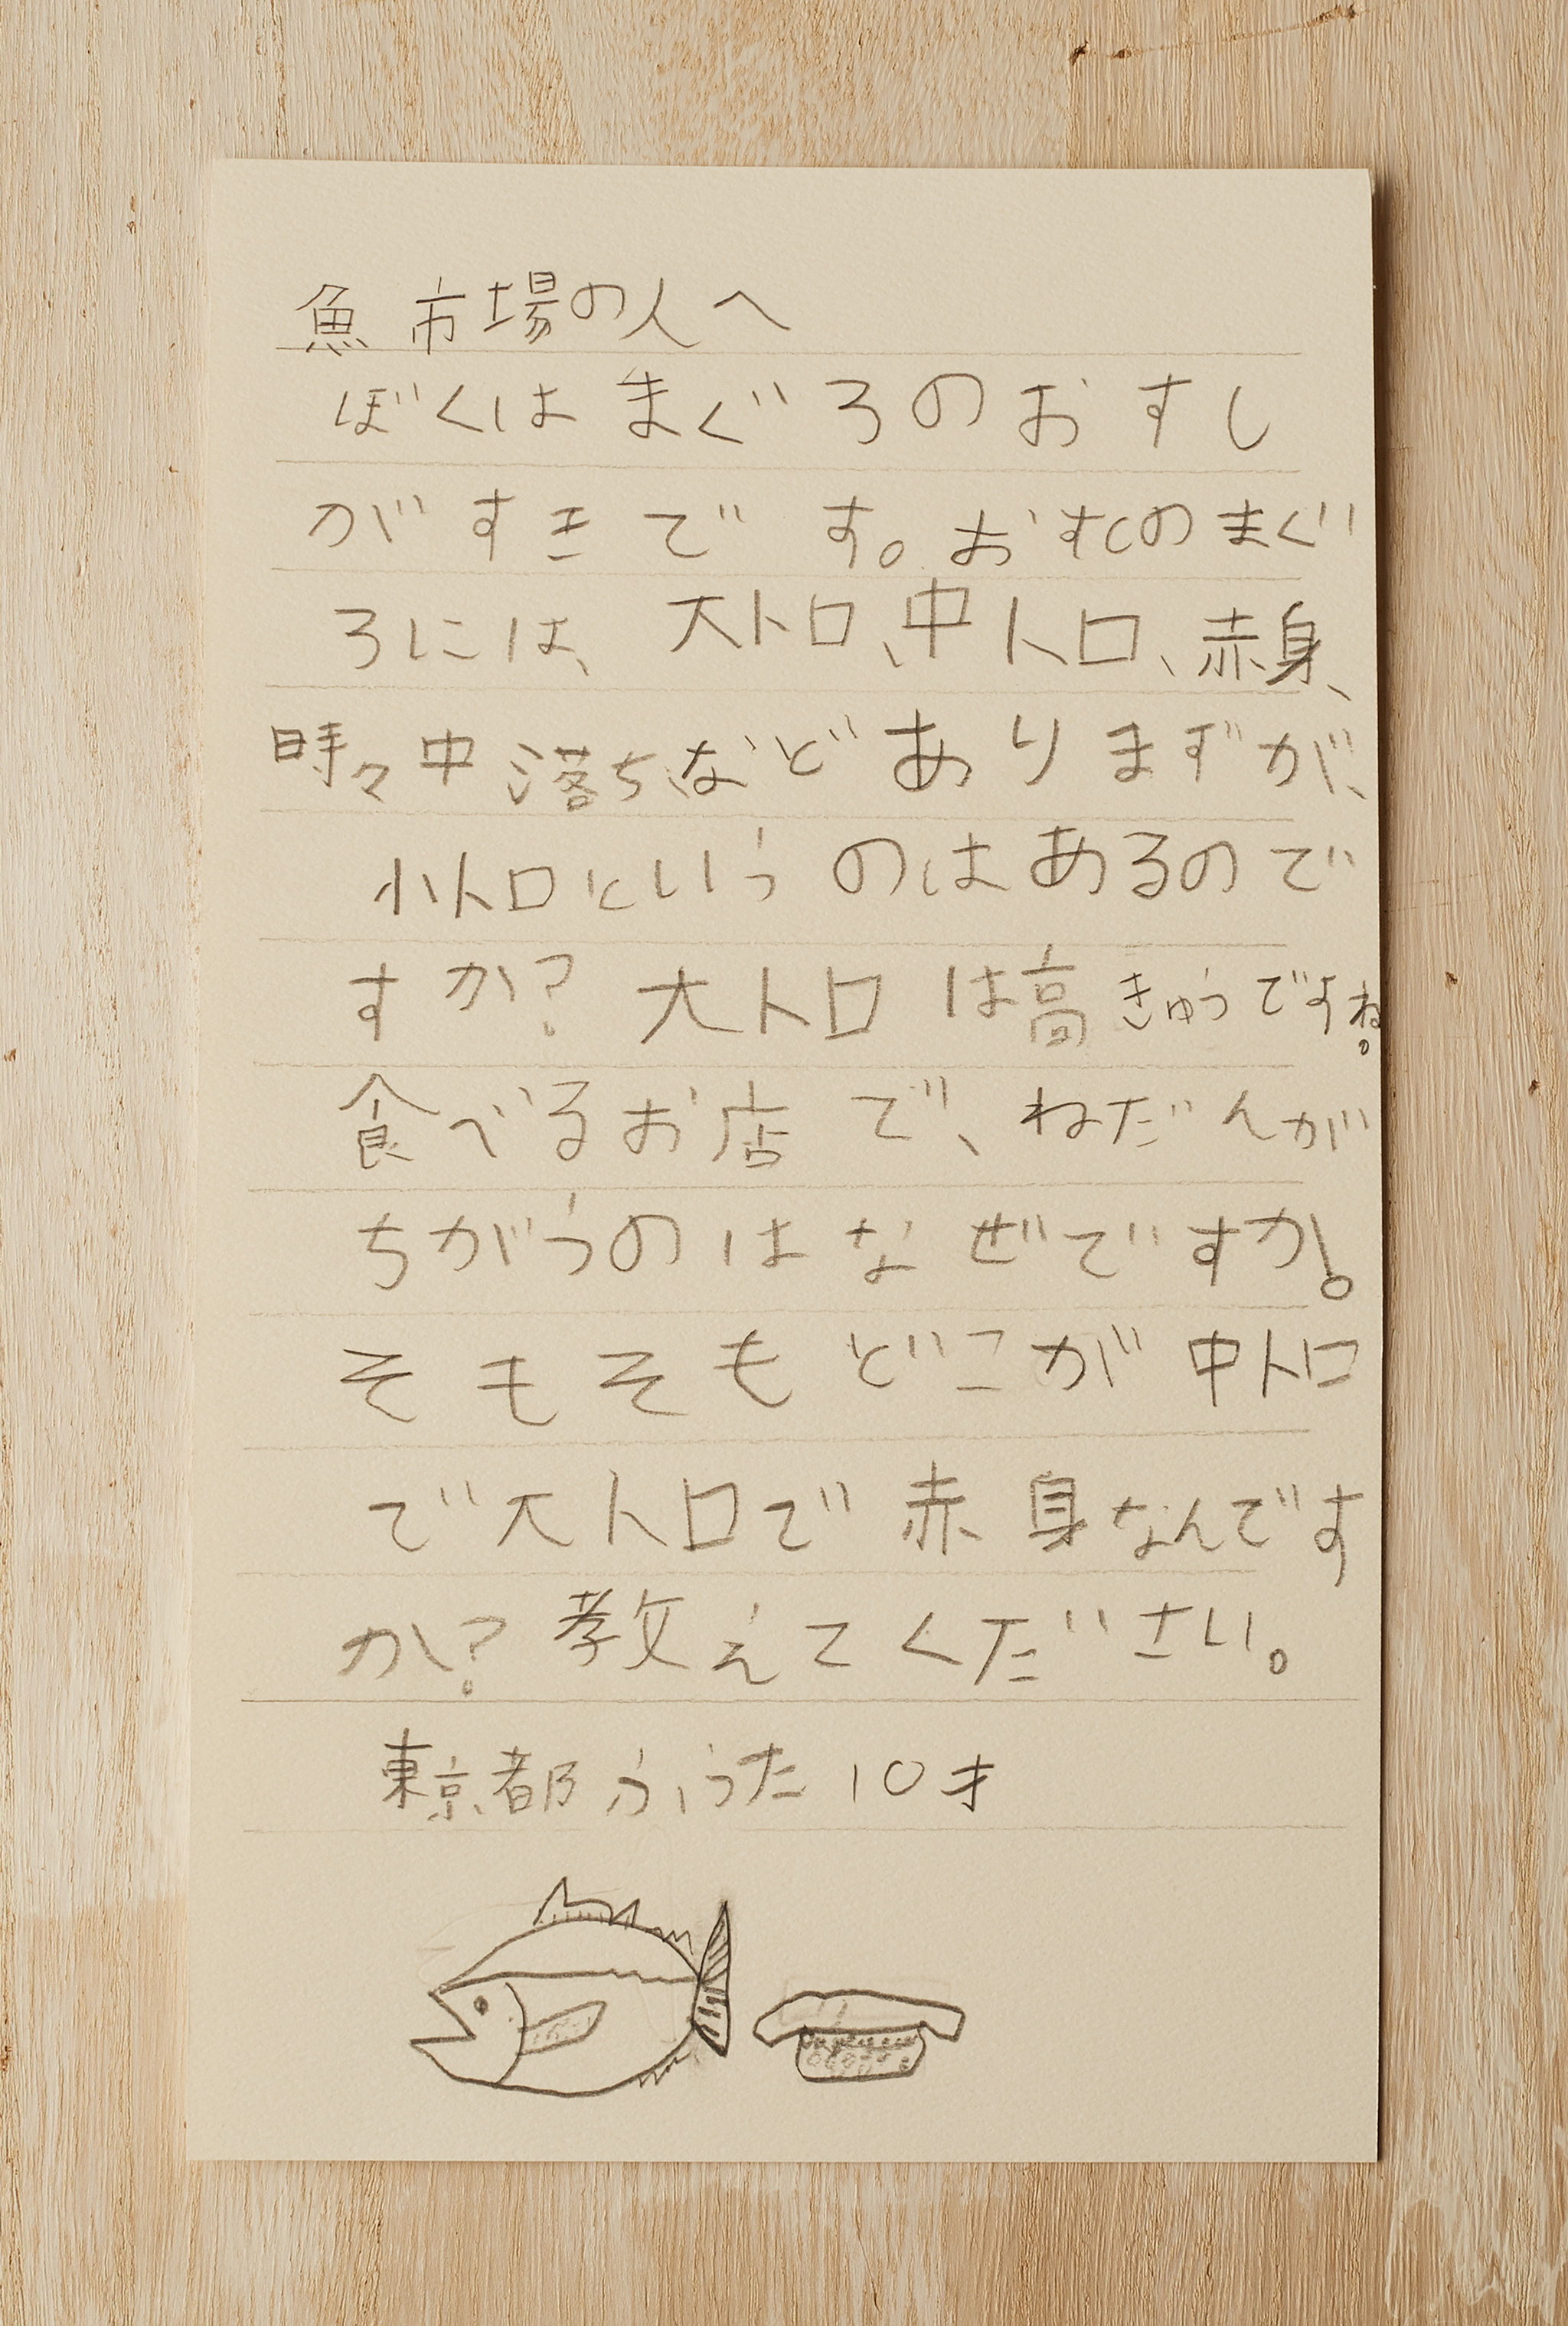 魚市場の人へ
ぼくはまぐろのおすし
がすきです。おすしのまぐ
ろには、大トロ、中トロ、赤身、
時々中落ちなどありますが、
小トロというのはあるので
すか?大トロは高きゅうですね。
食べるお店で、ねだんが
ちがうのはなぜですか。
そもそもどこが中トロ
で大トロで赤身なんです
か?教えてください。
東京都 うた 10才